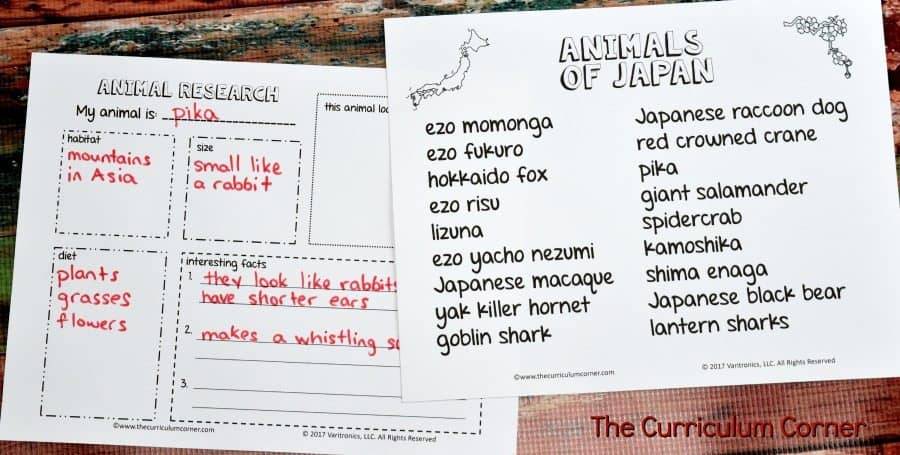 ANIMAL RESEARCH
My animal is: pika
habitat
mountains
in Asia
size
small like
a rabbit
this animal
diet
plants
grasses
flowers
interesting facts
1. they look like rabbits
have shorter ears
2. makes a whistling
3.
©www.thecurriculumcorner.com
© 2017 Varitronics, LLC. All Rights Reserved
ANIMALS
OF JAPAN
ezo momonga
ezo fukuro
hokkaido fox
ezo risu
lizuna
ezo yacho nezumi
Japanese macaque
yak killer hornet
goblin shark
Japanese raccoon dog
red crowned crane
pika
giant salamander
spidercrab
kamoshika
shima enaga
Japanese black bear
lantern sharks
©www.thecurriculumcorner.com
© 2017 Varitronics, LLC. All Rights Reserved
The Curriculum Corner